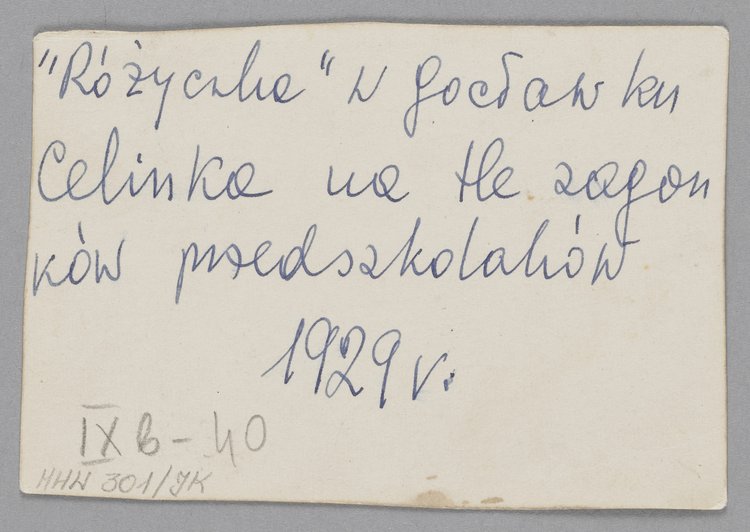 "Różyczka" w Gocławku
Celinka na tle zagon
ków przedszkolaków
1929 r.
IX B - 40
MHW 301/JK